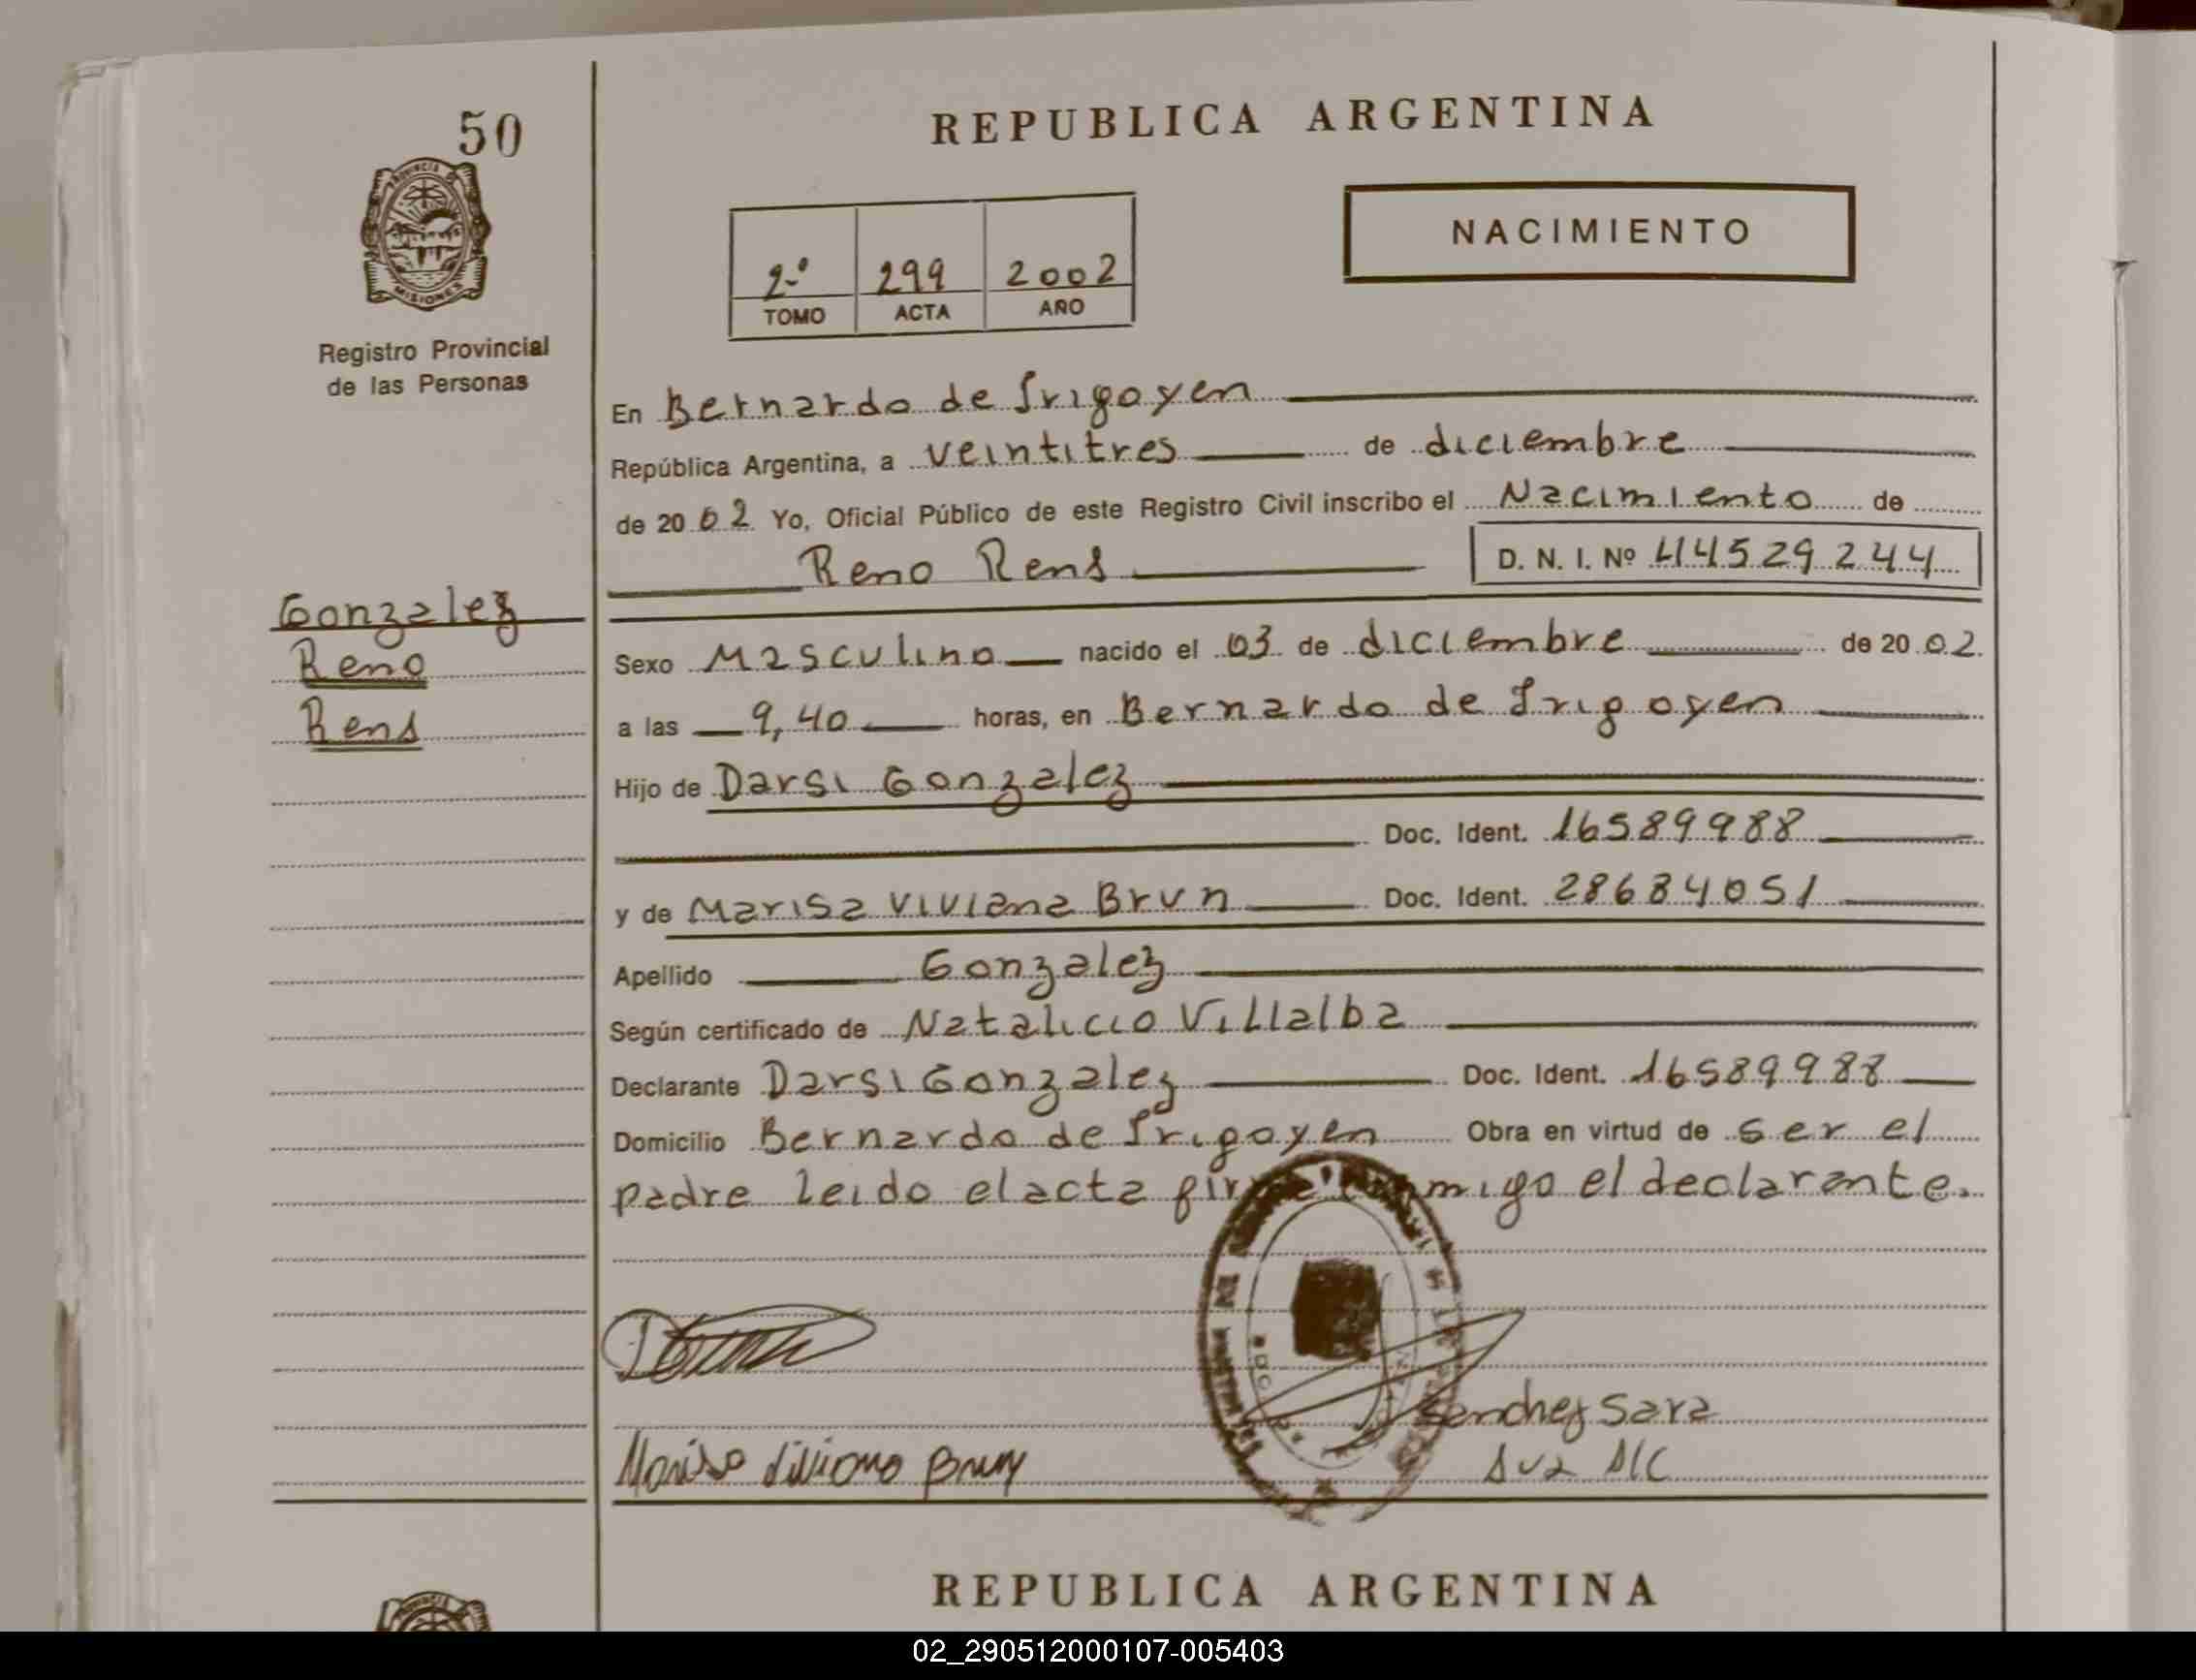 50
REPUBLICA ARGENTINA
PROVINCIA DE
MISIONES
NACIMIENTO
2º 299 2002
TOMO ACTA AÑO
Registro Provincial
de las Personas
En Bernardo de Irigoyen
República Argentina, a veintitres de diciembre
de 2002 Yo, Oficial Público de este Registro Civil inscribo el Nacimiento de
Reno Rens D. N. I. Nº 44529244
Gonzalez
Reno
Rens
Sexo Masculino nacido el 03 de diciembre de 2002
a las 9,40 horas, en Bernardo de Irigoyen
Hijo de Darsi Gonzalez
Doc. Ident. 16589988
y de Marisa Viviana Brun Doc. Ident. 28684051
Apellido Gonzalez
Según certificado de Natalicio Villalba
Declarante Darsi Gonzalez Doc. Ident. 16589988
Domicilio Bernardo de Irigoyen Obra en virtud de ser el
padre leido el acta firma conmigo el declarante.
Sanchez Sara
Marisa Viviana Brun
REPUBLICA ARGENTINA
02_290512000107-005403